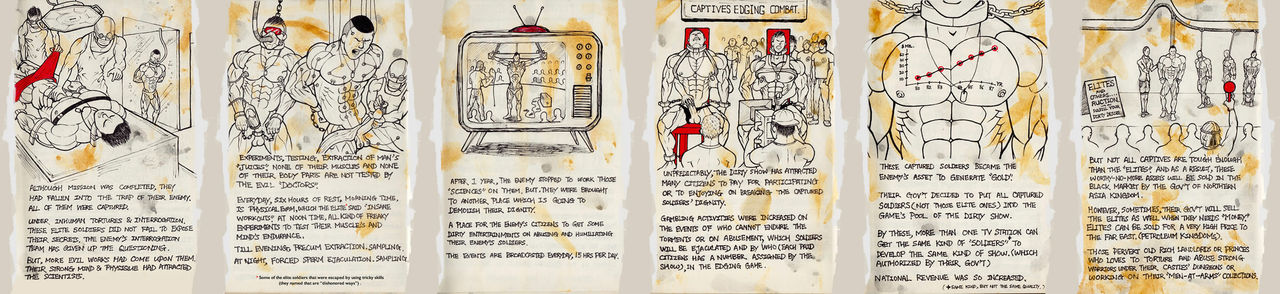 ALTHOUGH MISSION WAS COMPLETED, THEY
HAD FALLEN INTO THE TRAP OF THEIR ENEMY.
ALL OF THEM WERE CAPTURED.
UNDER INHUMAN TORTURES & INTERROGATION,
THESE ELITE SOLDIERS DID NOT FAIL TO EXPOSE
THEIR SECRETS, THE ENEMY'S INTERROGATION
TEAM HAS GIVEN UP THE QUESTIONING.
BUT, MORE EVIL WORKS HAD COME UPON THEM,
THEIR STRONG MIND & PHYSIQUE HAD ATTRACTED
THE SCIENTISTS.
EXPERIMENTS, TESTING, EXTRACTION OF MAN'S
"JUICES", NONE OF THEIR MUSCLES AND NONE
OF THEIR BODY PARTS ARE NOT TESTED BY
THE EVIL "DOCTORS".
EVERYDAY, SIX HOURS OF REST, MORNING TIME,
IS PHYSICAL EXAM, WHICH THE ELITE SAID "INSANE
WORKOUTS" AT NOON TIME, ALL KIND OF FREAKY
EXPERIMENTS TO TEST THEIR MUSCLES AND
MIND'S ENDURANCE.
TILL EVENING, PRECUM EXTRACTION, SAMPLING,
AT NIGHT, FORCED SPERM EJACULATION. SAMPLING
* Some of the elite soldiers that were escaped by using tricky skills
(they named that are "dishonored ways") .
AFTER 1 YEAR, THE ENEMY STOPPED TO WORK THOSE
"SCIENCES" ON THEM, BUT THEY WERE BROUGHT
TO ANOTHER PLACE WHICH IS GOING TO
DEMOLISH THEIR DIGNITY.
A PLACE FOR THE ENEMY'S CITIZENS TO GET SOME
DIRTY ENTERTAINMENTS ON ABUSING AND HUMILIATING
THEIR ENEMY'S SOLDIERS.
THE EVENTS ARE BROADCASTED EVERYDAY, 15 HRS PER DAY.
CAPTIVES EDGING COMBAT.
UNPREDICTABLY, THE DIRTY SHOW HAS ATTRACTED
MANY CITIZENS TO PAY FOR PARTICIPATING
OR TO ENJOYING ON BREAKING THE CAPTURED
SOLDIERS' DIGNITY.
GAMBLING ACTIVITIES WERE INCREASED ON
THE EVENTS OF WHO CANNOT ENDURE THE
TORMENTS OR ON ABUSEMENT, WHICH SOLDIERS
WILL BE EJACULATED AND BY WHO (EACH PAID
CITIZENS HAS A NUMBER, ASSIGNED BY THE
SHOW), IN THE EDGING GAME.
THESE CAPTURED SOLDIERS BECAME THE
ENEMY'S ASSET TO GENERATE "GOLD".
THEIR GOV'T DECIDED TO PUT ALL CAPTURED
SOLDIERS, (NOT THOSE ELITE ONES) INTO THE
GAME'S POOL OF THE DIRTY SHOW.
BY THESE, MORE THAN ONE TV STATION CAN
GET THE SAME KIND OF "SOLDIERS" TO
DEVELOP THE SAME KIND OF SHOW. (WHICH
AUTHORIZED BY THEIR GOV'T)
NATIONAL REVENUE WAS SO INCREASED.
(* SAME KIND, BUT NOT THE SAME QUALITY.)
ELITES
AND
OTHERS
AUCTION
DIRTY DESIRE
BUT NOT ALL CAPTIVES ARE TOUGH ENOUGH
THAN THE "ELITES" AND AS A RESULT, THREE
WORTHY-NO-MORE ASSETS WILL BE SOLD IN THE
BLACK MARKET BY THE GOV'T OF NORTHERN
ASIA KINGDOM.
HOWEVER, SOMETIMES, THEIR GOV'T WILL SELL
THE ELITES AS WELL WHEN THEY NEEDS "MONEY",
ELITES CAN BE SOLD FOR A VERY HIGH PRICE TO
THE FAR EAST. (PETROLEUM KINGDOMS).
THOSE PERVERT OLD RICH LANDLORDS OR PRINCES
WHO LOVES TO TORTURE AND ABUSE STRONG
WARRIORS UNDER THEIR CASTLES' DUNGEONS OR
WORKING ON THEIR "MEN-AT-ARMS" COLLECTIONS.